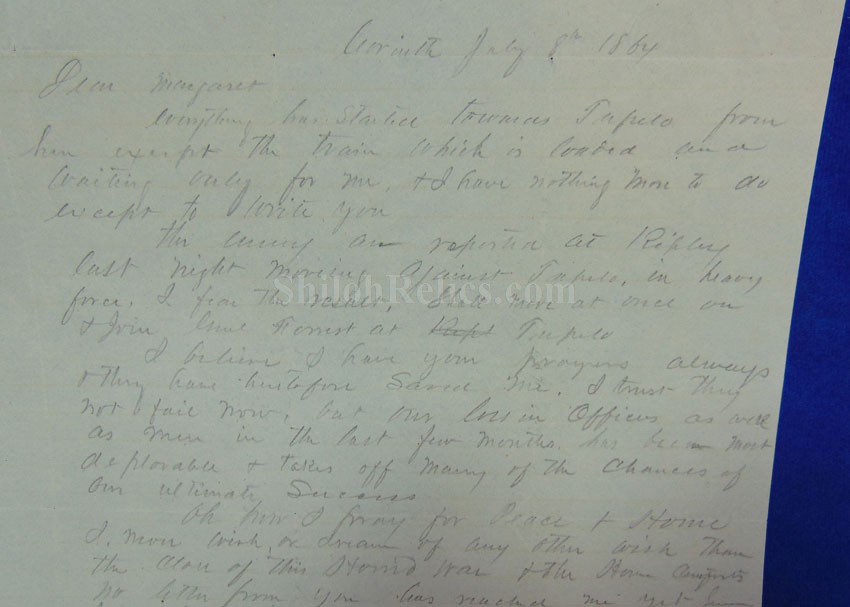 Corinth July 8th 1864
Dear Margaret
everything has started towards Tupelo from
here except the train which is loaded and
waiting only for me, & I have nothing more to do
except to write you
the enemy are reported at Ripley
last night moving against Tupelo, in heavy
force. I fear the result, Shall move at once on
& Join Genl Forrest at Tupelo
ShilohRelics.com
I believe I have your prayers always
& they have heretofore Saved me. I trust they
not fail now, but our loss in Officers as well
as men in the last few months has been most
deplorable & takes off many of the chances of
our ultimate Success
Oh how I pray for Peace & Home
I wish or dream of any other wish than
the close of this Horrid war & the Home
no letter from you has reached me yet